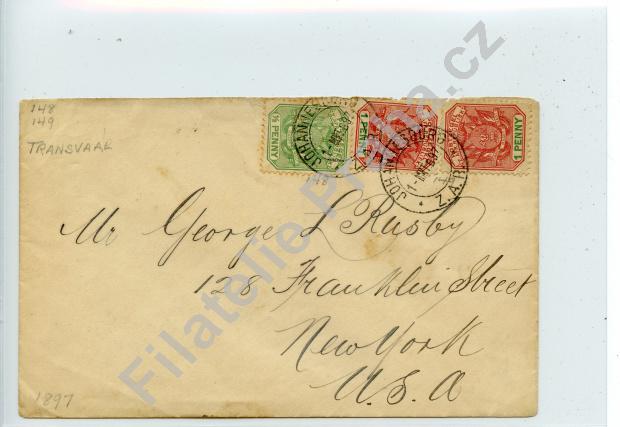 148
149
TRANSVAAL
½ PENNY
1 PENNY
1 PENNY
JOHANNESBURG
JOHANNESBURG
Z.A.R.
148
Mr George L Rusby
128 Franklin Street
New York
U.S.A
1897
Filatelie Praha.cz